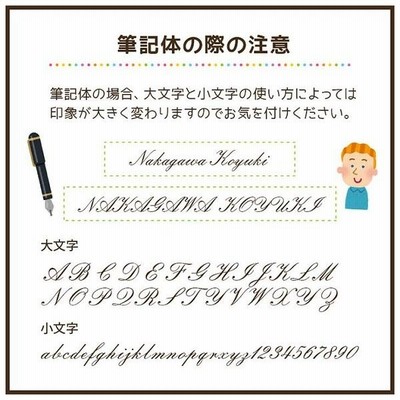 筆記体の際の注意
筆記体の場合、大文字と小文字の使い方によっては
印象が大きく変わりますのでお気を付けください。
Nakagawa Koyuki
NAKAGAWA KOYUKI
大文字
A B C D E F G H I J K L M
N O P Q R S T U V W X Y Z
小文字
abcdefghijklmnopqrxyz1234567890